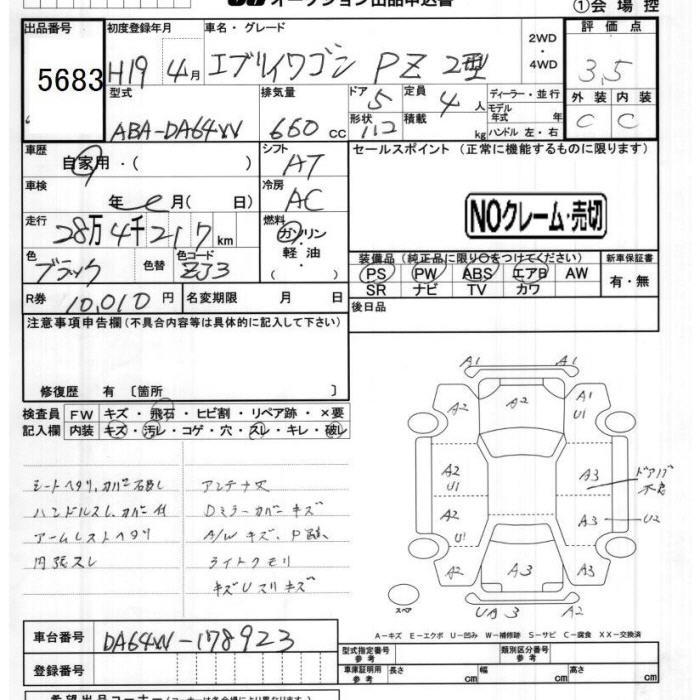 オークション出品申込書
①会場控
出品番号
初度登録年月
車名・グレード
2WD・4WD
評価点
5683
H19 4月
エブリイワゴン PZ 2型
3.5
型式
排気量
ドア 5
定員 4人
ディーラー・並行
外装
内装
ABA-DA64W
660cc
形状
積載 kg
モデル年式 年
ハンドル 左・右
C
C
車歴
自家用・( )
シフト
AT
セールスポイント (正常に機能するものに限ります)
車検
年 月( 日)
冷房
AC
NOクレーム・売切
走行
28万4千217km
燃料
ガソリン・軽油・
色
ブラック
色替
色コード
ZJ3
装備品 (純正品に限り○をつけてください)
新車保証書
PS PW ABS エアB AW
SR ナビ TV カワ
有・無
R券
10,010円
名変期限 月 日
後日品
注意事項申告欄 (不具合内容等は具体的に記入して下さい)
修復歴 有 〔箇所 〕
検査員記入欄
FW キズ・飛石・ヒビ割・リペア跡・×要
内装 キズ・汚レ・コゲ・穴・スレ・キレ・破レ
シートヘタリ、カバー
アンテナ欠
ハンドルスレ、カバー付
Dミラーカバーキズ
アームレストヘタリ
A/Wキズ、
内張スレ
ライトクモリ
キズUスリキズ
A1 A1
A2 A2 A1 U1
A2 U1 A3 ドアノブ不良
A2 U1 A3 U2
A2 A3 A3
スペア
UA3 A2
A-キズ E-エクボ U-凹み W-補修跡 S-サビ C-腐食 XX-交換済
車台番号
DA64W-178923
型式指定番号 参考
類別区分番号 参考
登録番号
車庫証明用 参考
長さ cm
幅 cm
高さ cm
希望出品コーナー